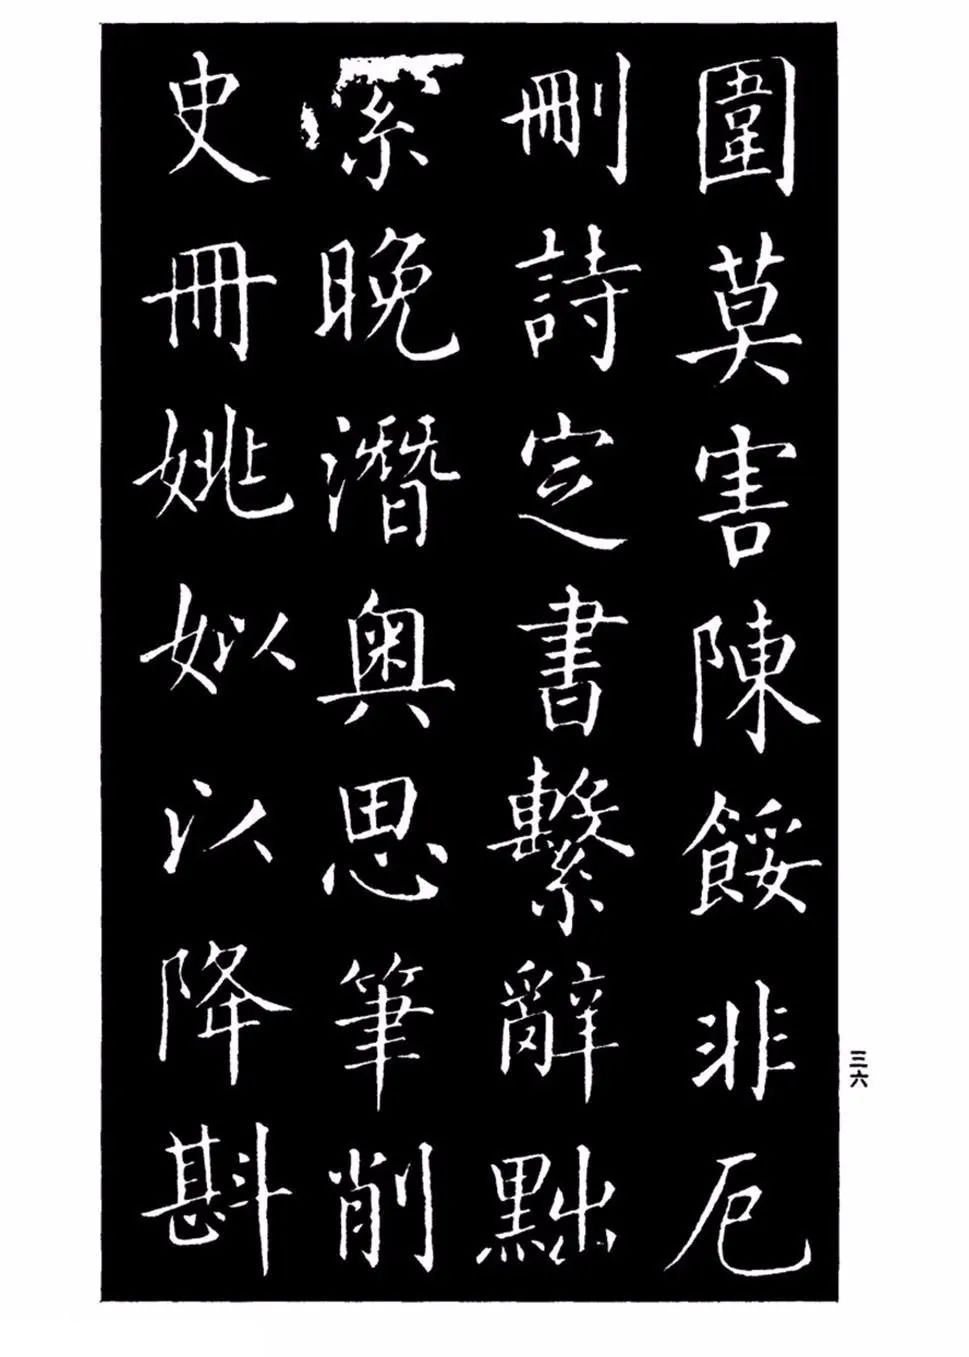 圍莫害陳餒非厄
刪詩定書繫辭黜
索晚潛奧思筆削
史冊姚姒以降斟
三六